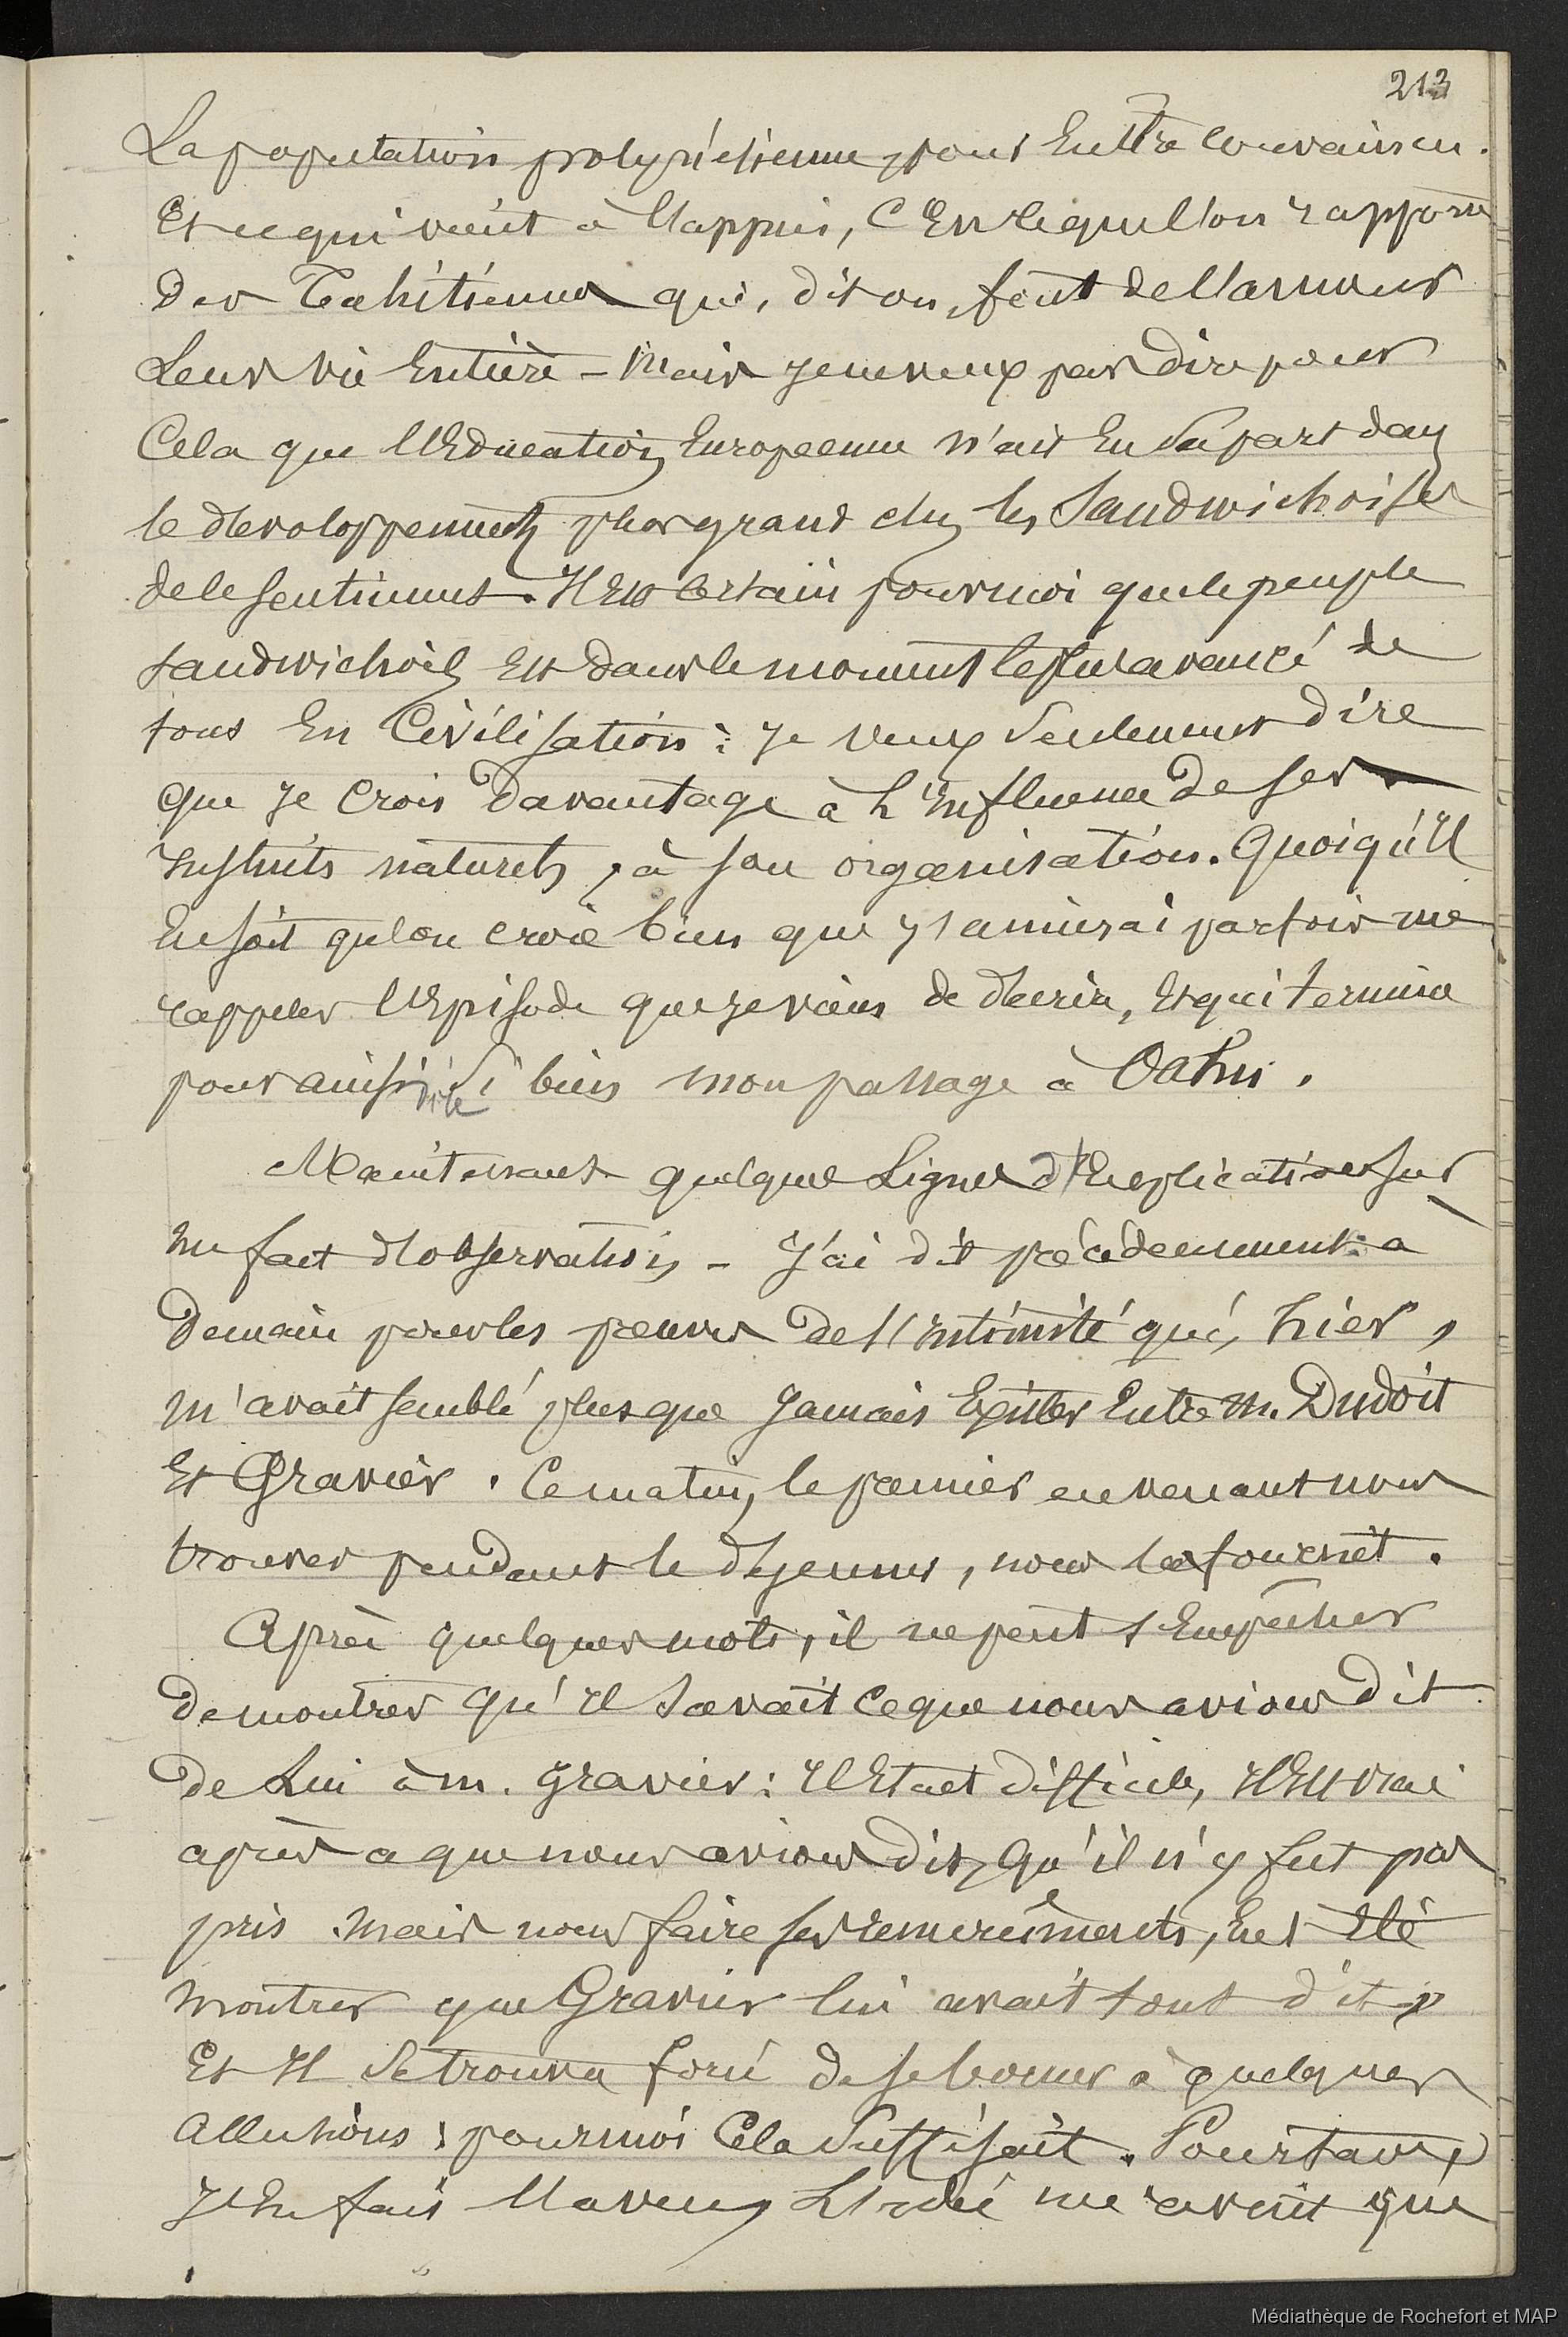 213
La population polynésienne, pour Entre Convaincu.
Et ce qui vient à l'appui, C'En ce que l'on rapporte
Des Tahitiennes qui, dit on, font de l'amour
Leur vie Entière – Mais je ne veux pas dire pour
Cela que l'Education Européenne n'ait Eu Sa part dans
le developpement plus grand chez les Sandwichoises
de ce sentiment. Il Est Certain pour moi que le peuple
sandwichois Est dans le moment le plus avancé de
tous En Civilisation : Je veux Seulement dire
que Je Crois Davantage à L'Influence De ses
Instincts naturels, à son organisation. Quoiqu'Il
En soit qu'on croie bien que j'aimerai parfois me
rappeler l'Episode que je viens de decrire, Et qui termina
pour ainsi dire Si bien mon passage à Oahu.
Maintenant quelques Lignes d'Explication sur
un fait d'observation – J'ai dit précédemment : à
Demain pour les preuves de l'Intimité qui, hier,
m'avait semblé plus que Jamais Exister Entre M. Dudoit
Et Gravier. Ce matin, le premier en venant nous
trouver pendant le dejeuner, nous la fournit.
Après quelques mots, il ne peut s'Empêcher
De montrer qu'Il Savait Ce que nous avions Dit
De Lui à M. Gravier : Il Etait difficile, Il Est vrai
après ce que nous avions Dit, qu'il n'y fut pas
pris. Mais nous faire ses remercîments, Eut Eté
montrer que Gravier lui avait tout dit,
Et Il Se trouva forcé de se borner à quelques
allusions : pour moi Cela Suffisait. Pourtant,
J'En fais l'aveu, L'idée me avait que
Médiathèque de Rochefort et MAP